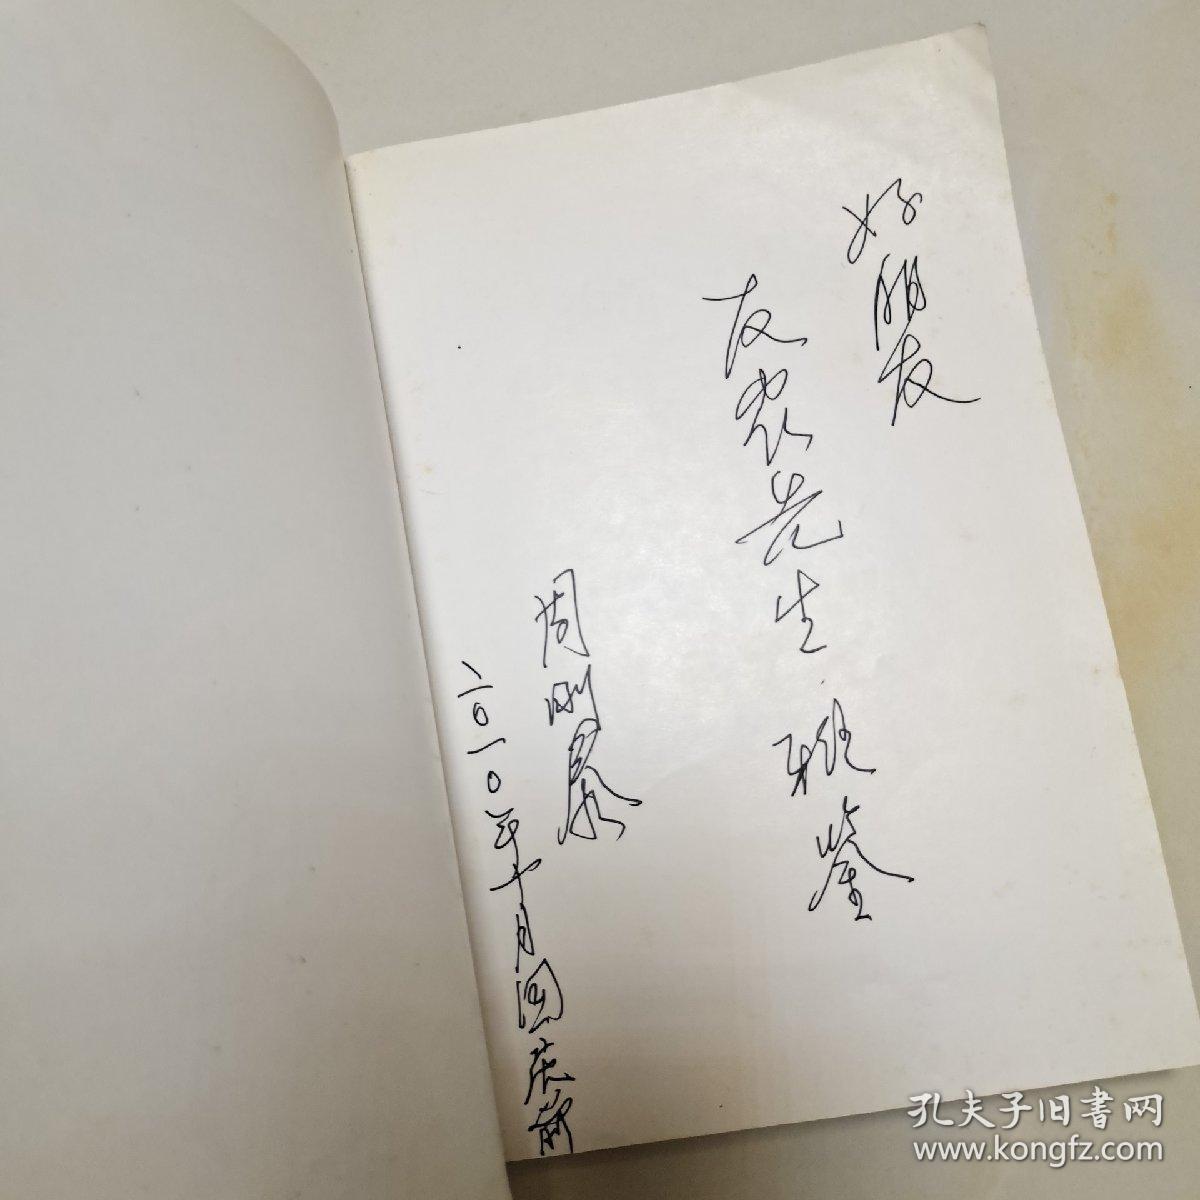 好朋友
友农先生 雅鉴
周刚
二〇一〇年十月国庆前
孔夫子旧书网
www.kongfz.com